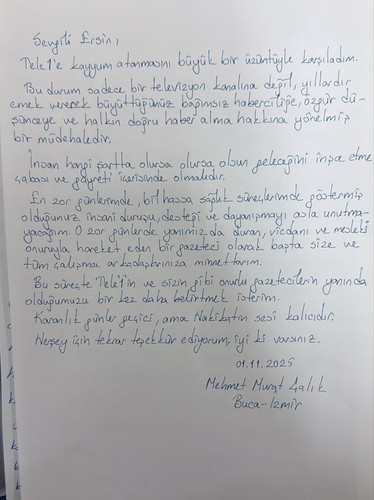 Sevgili Ersin,
Tele1'e kayyum atanmasını büyük bir üzüntüyle karşıladım.
Bu durum sadece bir televizyon kanalına değil, yıllardır
emek vererek büyüttüğünüz bağımsız haberciliğe, özgür dü-
şünceye ve halkın doğru haber alma hakkına yönelmiş
bir müdahaledir.
İnsan hangi şartta olursa olursa olsun geleceğini inşa etme
çabası ve gayreti içerisinde olmalıdır.
En zor günlerimde, bilhassa sağlık süreçlerimde göstermiş
olduğunuz insani duruşu, desteği ve dayanışmayı asla unutma-
yacağım. O zor günlerde yanımızda duran, vicdanı ve mesleki
onuruyla hareket eden bir gazeteci olarak başta size ve
tüm çalışma arkadaşlarınıza minnettarım.
Bu süreçte Tele1'in ve sizin gibi onurlu gazetecilerin yanında
olduğumuzu bir kez daha belirtmek isterim.
Karanlık günler geçici, ama Hakikatin sesi kalıcıdır.
Herşey için tekrar teşekkür ediyorum, iyi ki varsınız.
01.11.2025
Mehmet Murat Çalık
Buca-İzmir